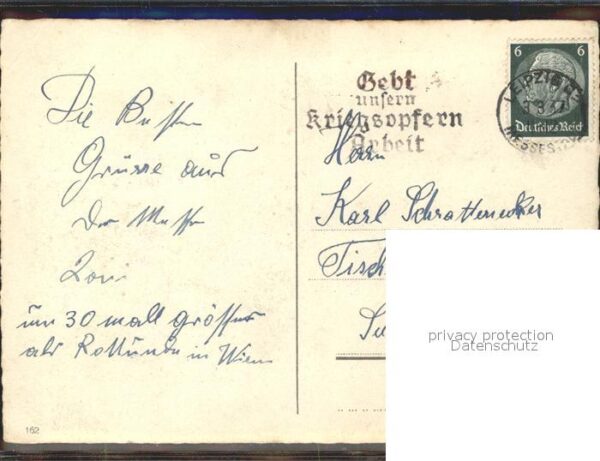 Die Besten
Grüsse aus
der Messe
um 30 mall grösser
als Rottunde in Wien
162
Gebt
unsern
Kriegsopfern
Arbeit
6 6
Deutsches Reich
LEIPZIG
MESSESTADT
Herrn
Karl Schrattenecker
Tisch
privacy protection
Datenschutz